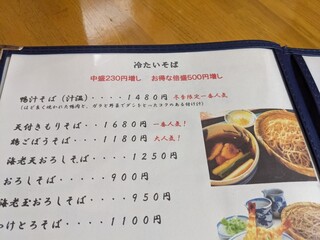 冷たいそば
中盛230円増し お得な倍盛500円増し
鴨汁そば(汁温)・・・・1480円 冬季限定一番人気!
(ほど良く焼かれた鴨肉と、ダシと野菜でグンとなったコクのある付け汁)
天付きもりそば・・1680円 一番人気!
鶏ごぼうそば・・・1180円 大人気!
海老天おろしそば・・・・1250円
おろしそば・・・・・900円
海老玉おろしそば・・・・950円
かけとろそば・・・1100円